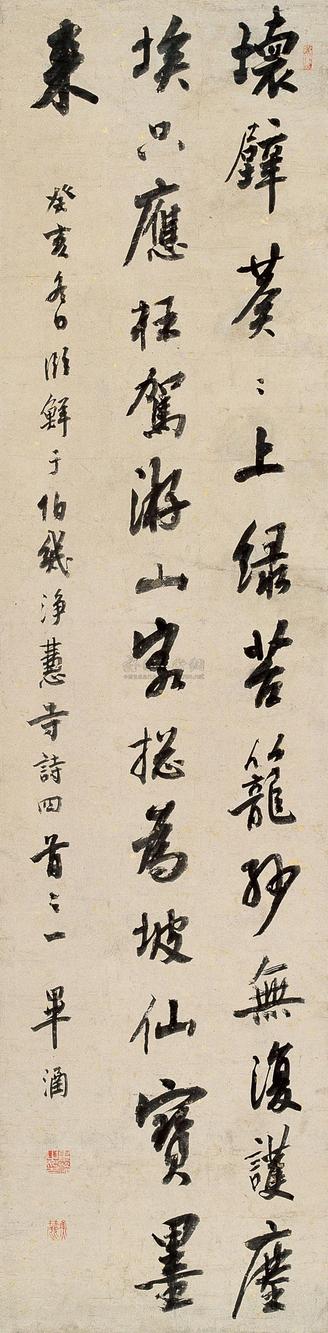 壞壁莓〻上緑苔籠紗無復護塵
埃只應枉駕游山客捴為坡仙寶墨
来
癸亥冬日臨鮮于伯幾浄慧寺詩四首之一 畢涵